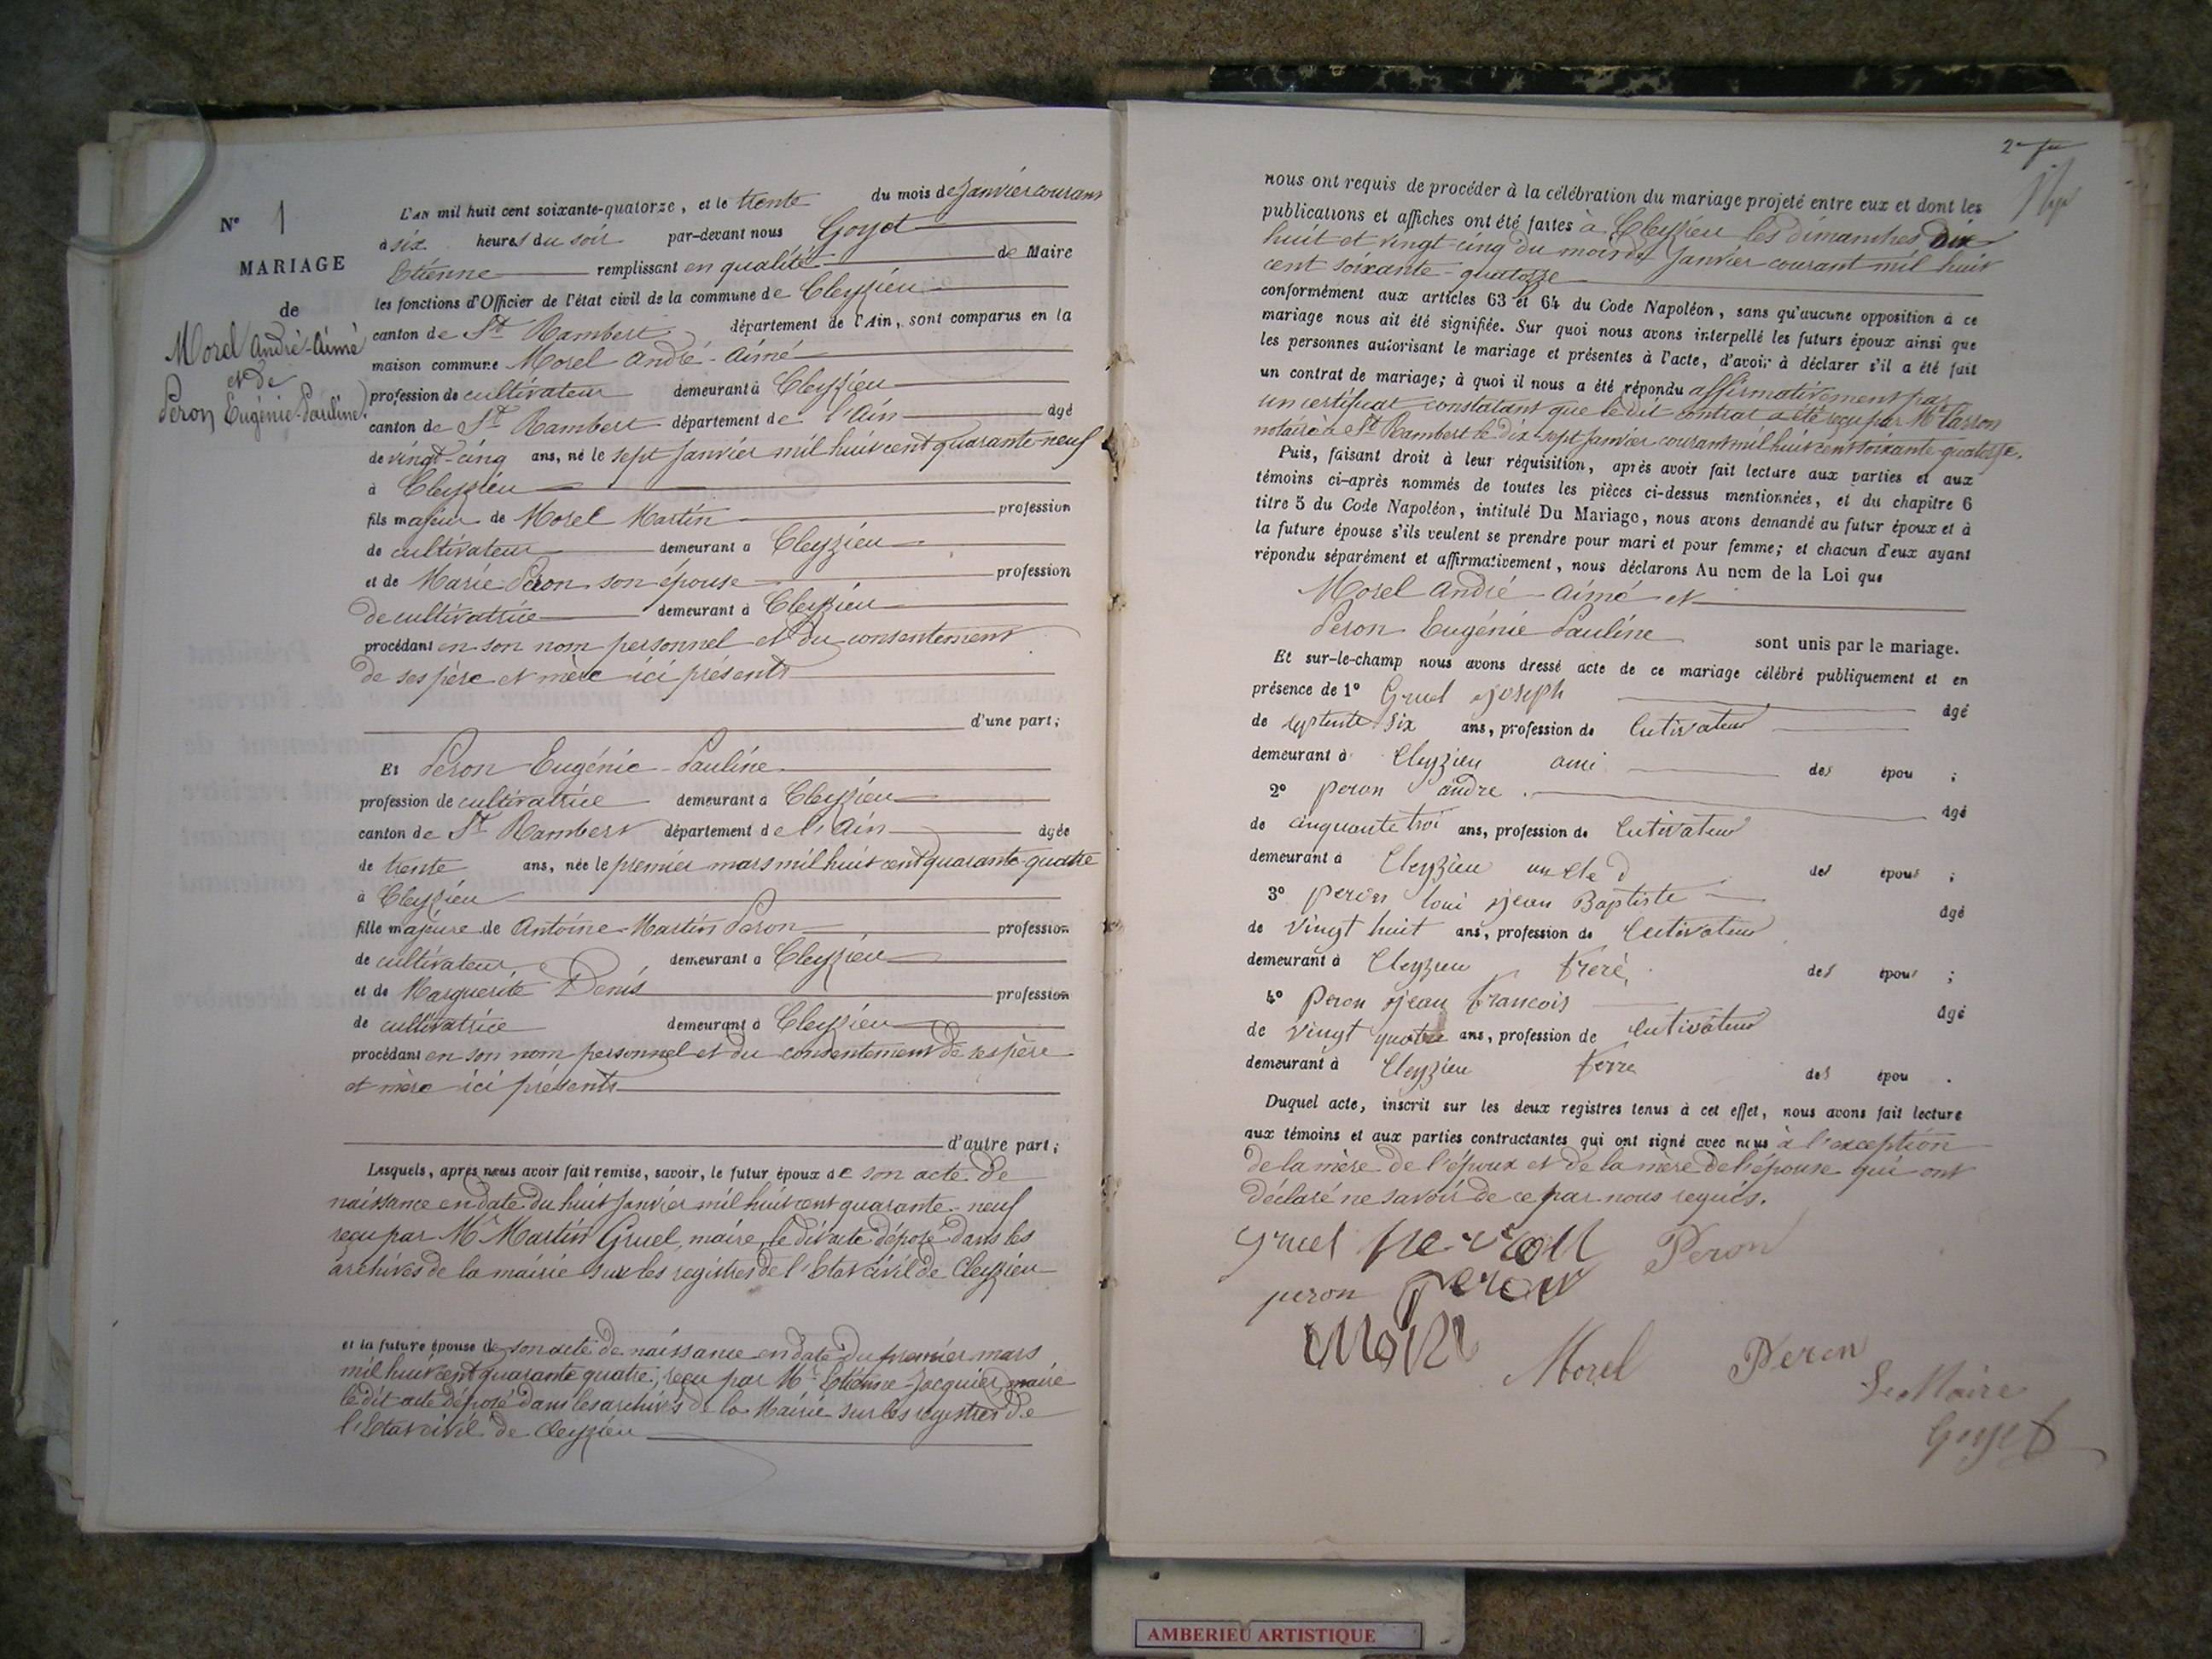 N° 1
MARIAGE
de
Morel André-Aimé
et de
Peron Eugénie-Pauline.
L'AN mil huit cent soixante-quatorze, et le trente du mois de Janvier courant
à six heures du soir par-devant nous Goyet
Etienne remplissant en qualité de Maire
les fonctions d'Officier de l'état civil de la commune de Cleyzieu
canton de St Rambert département de l'Ain, sont comparus en la
maison commune Morel André-Aimé
profession de cultivateur demeurant à Cleyzieu
canton de St Rambert département de l'Ain âgé
de vingt-cinq ans, né le sept Janvier mil huit cent quarante-neuf
à Cleyzieu
fils majeur de Morel Martin profession
de cultivateur demeurant à Cleyzieu
et de Marie Peron son épouse profession
de cultivatrice demeurant à Cleyzieu
procédant en son nom personnel et du consentement
de ses père et mère ici présents
d'une part;
Et Peron Eugénie-Pauline
profession de cultivatrice demeurant à Cleyzieu
canton de St Rambert département de l'Ain âgée
de trente ans, née le premier mars mil huit cent quarante-quatre
à Cleyzieu
fille majeure de Antoine-Martin Peron profession
de cultivateur demeurant à Cleyzieu
et de Marguerite Denis profession
de cultivatrice demeurant à Cleyzieu
procédant en son nom personnel et du consentement de ses père
et mère ici présents
d'autre part;
Lesquels, après nous avoir fait remise, savoir, le futur époux de son acte de
naissance en date du huit Janvier mil huit cent quarante-neuf
reçu par Mr Martin Gruel, maire, le dit acte déposé dans les
archives de la mairie sur les registres de l'Etat civil de Cleyzieu
et la future épouse de son acte de naissance en date du premier mars
mil huit cent quarante quatre, reçu par Mr Etienne Jacquier, maire
le dit acte déposé dans les archives de la Mairie sur les registres de
l'Etat civil de Cleyzieu
nous ont requis de procéder à la célébration du mariage projeté entre eux et dont les
publications et affiches ont été faites à Cleyzieu les dimanches dix
huit et vingt-cinq du mois de Janvier courant mil huit
cent soixante-quatorze
conformément aux articles 63 et 64 du Code Napoléon, sans qu'aucune opposition à ce
mariage nous ait été signifiée. Sur quoi nous avons interpellé les futurs époux ainsi que
les personnes autorisant le mariage et présentes à l'acte, d'avoir à déclarer s'il a été fait
un contrat de mariage; à quoi il nous a été répondu affirmativement par
un certificat constatant que le dit contrat a été reçu par Me
notaire à St Rambert le dix-sept Janvier courant mil huit cent soixante-quatorze.
Puis, faisant droit à leur réquisition, après avoir fait lecture aux parties et aux
témoins ci-après nommés de toutes les pièces ci-dessus mentionnées, et du chapitre 6
titre 5 du Code Napoléon, intitulé Du Mariage, nous avons demandé au futur époux et à
la future épouse s'ils veulent se prendre pour mari et pour femme; et chacun d'eux ayant
répondu séparément et affirmativement, nous déclarons Au nom de la Loi que
Morel André-Aimé et
Peron Eugénie Pauline sont unis par le mariage.
Et sur-le-champ nous avons dressé acte de ce mariage célébré publiquement et en
présence de 1° Gruel Joseph âgé
de septente six ans, profession de Cutivateur
demeurant à Cleyzieu ami des épou ;
2° peron andre âgé
de cinquante troi ans, profession de Cutivateur
demeurant à Cleyzieu des épous ;
3° peron loui jean Baptiste âgé
de vingt huit ans, profession de Cutivateur
demeurant à Cleyzieu frere des épous ;
4° peron jean francois âgé
de vingt quatre ans, profession de Cutivateur
demeurant à Cleyzieu ferre des épou .
Duquel acte, inscrit sur les deux registres tenus à cet effet, nous avons fait lecture
aux témoins et aux parties contractantes qui ont signé avec nous à l'exception
de la mère de l'époux et de la mère de l'épouse qui ont
déclaré ne savoir de ce par nous requis.
gruel Peron
peron peron
Morel Peron
Le Maire
Goyet
AMBERIEU ARTISTIQUE